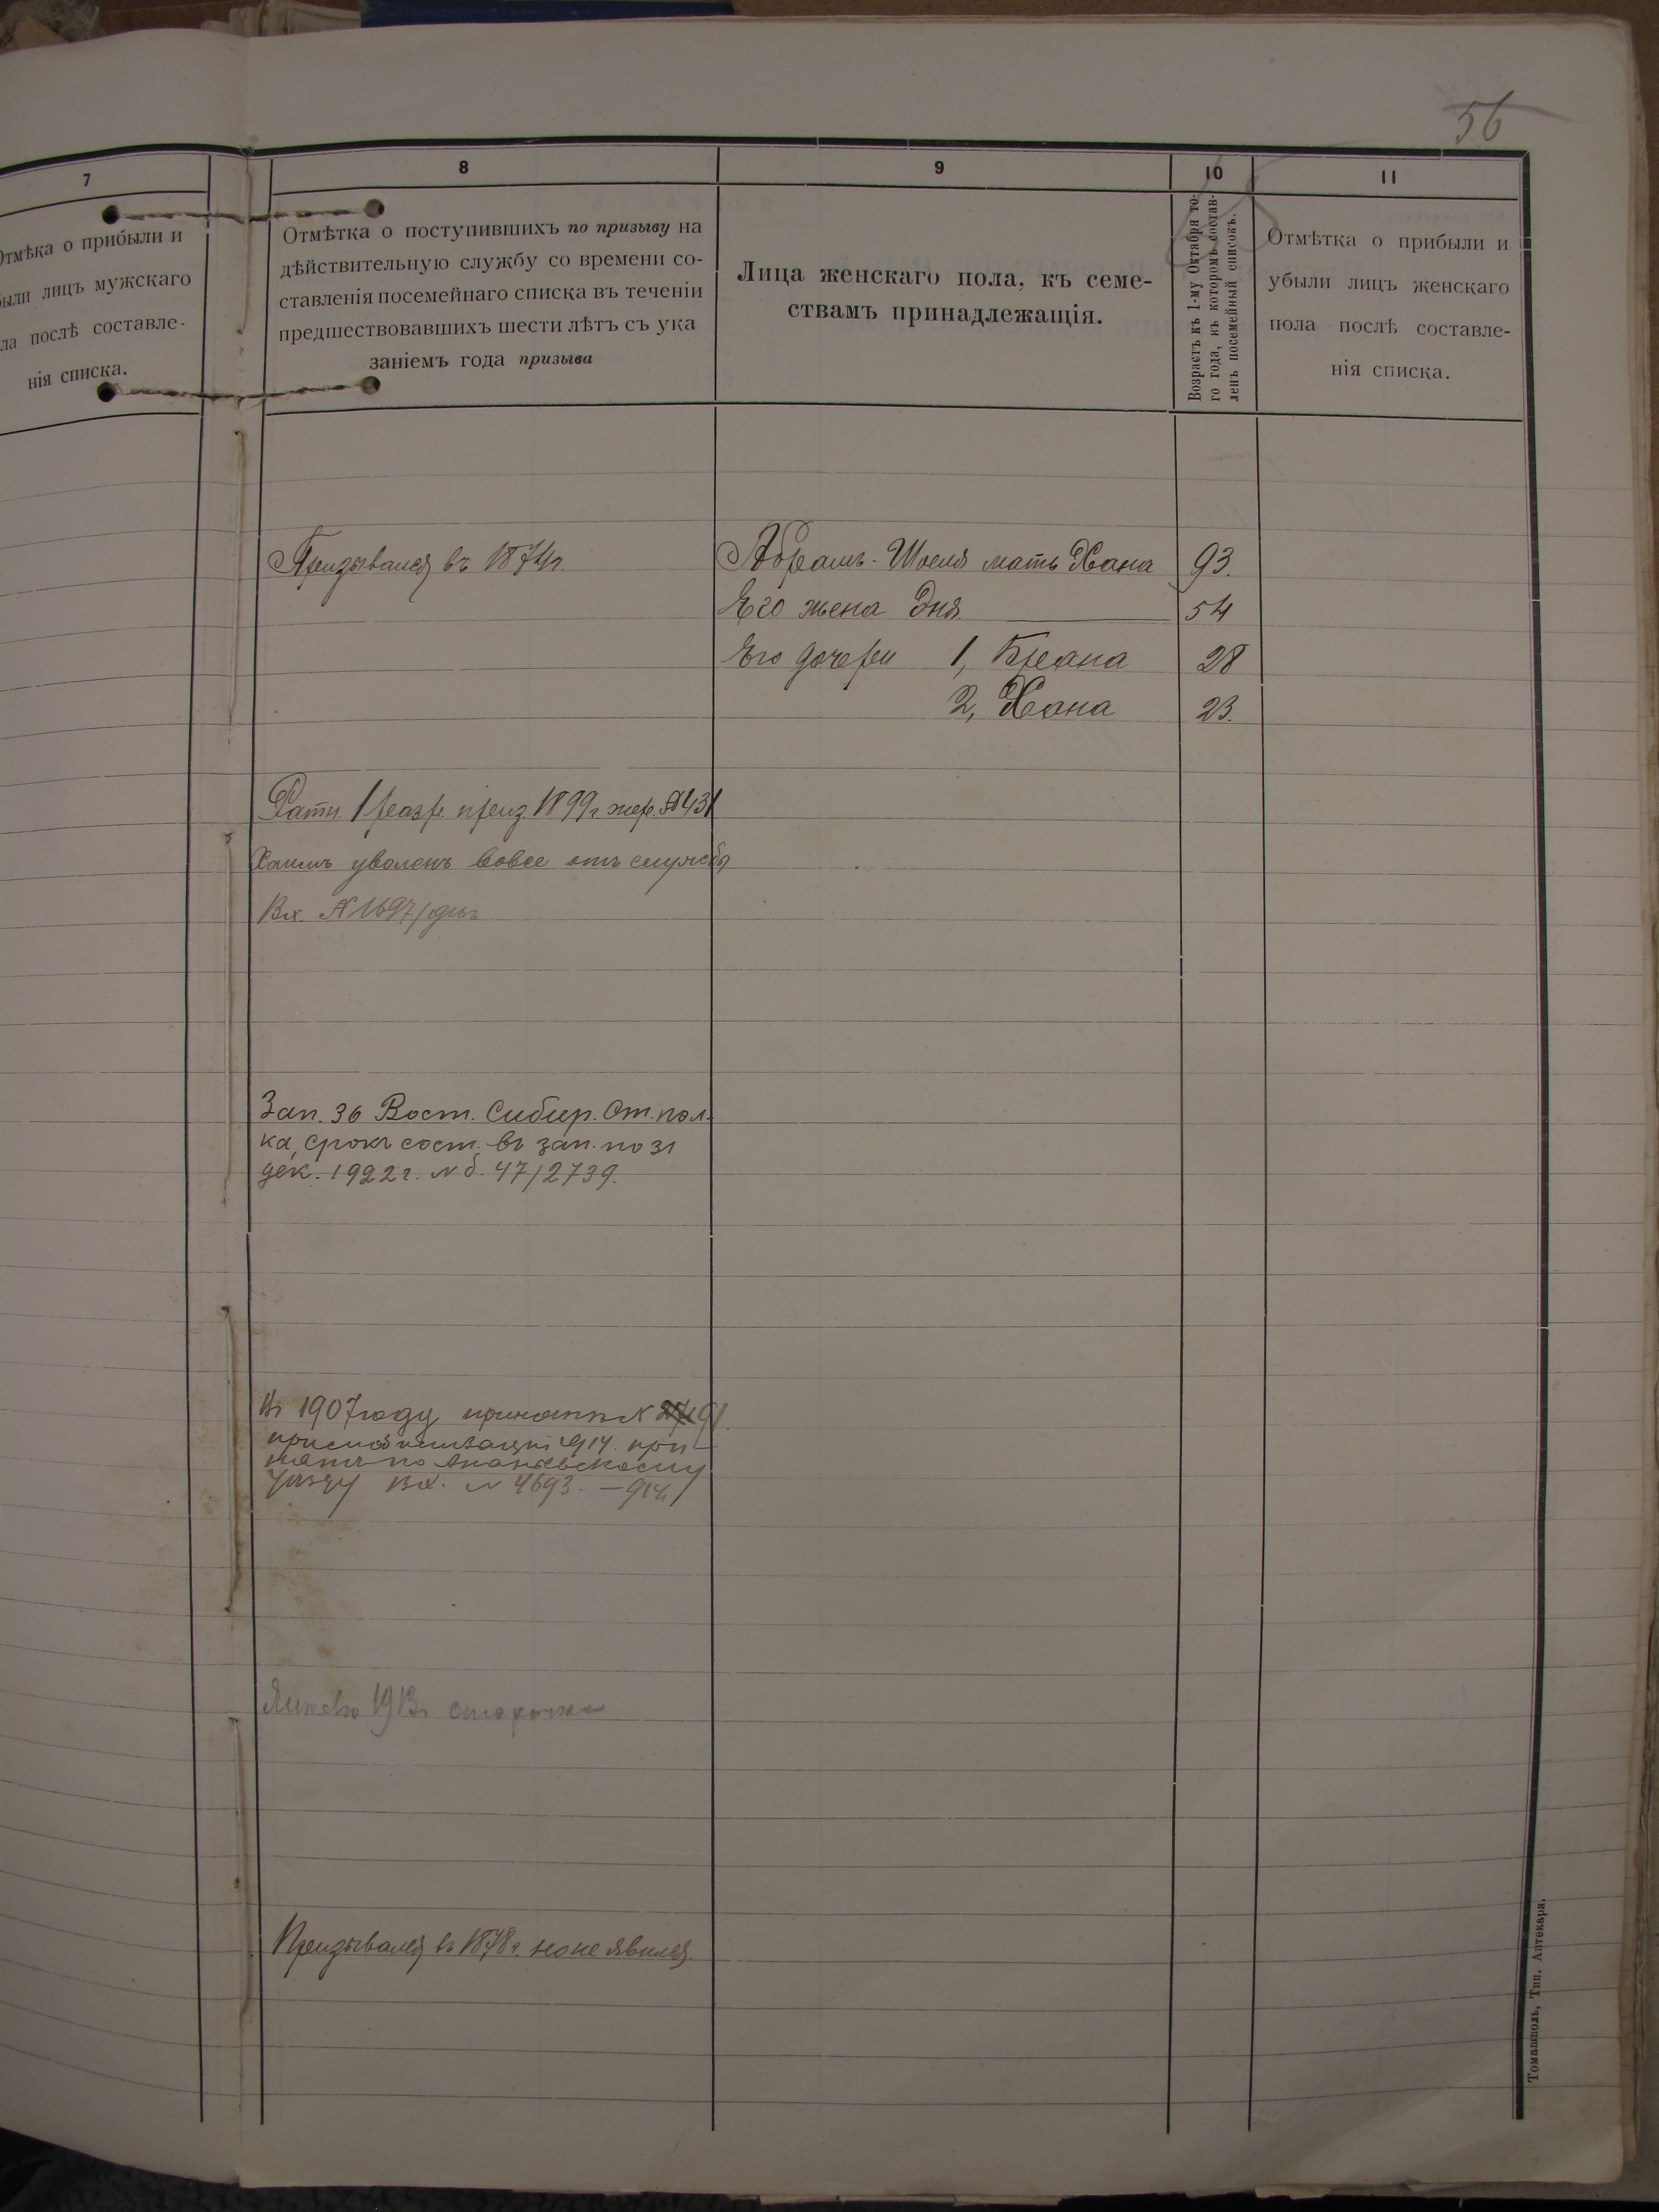 56
7
Отмѣка о прибыли и
были лицъ мужскаго
ла послѣ составле-
нія списка.
8
Отмѣтка о поступившихъ по призыву на
дѣйствительную службу со времени со-
ставленія посемейнаго списка въ теченіи
предшествовавшихъ шести лѣтъ съ ука
заніемъ года призыва
9
Лица женскаго пола, къ семе-
ствамъ принадлежащія.
10
Возрастъ къ 1-му Октября то-
го года, къ которомъ состав-
ленъ посемейный списокъ.
11
Отмѣтка о прибыли и
убыли лицъ женскаго
пола послѣ составле-
нія списка.
Призывался въ 1874г.
Абрамъ-Шоеля мать Хана 93.
Его жена Эня 54
Его дочери 1, Бреана 28
2, Хана 23.
Ратн. 1 разр. приз. 1899г. жер. № 431
Хаимъ уволенъ вовсе отъ службы
Вх. № 1697
Зап. 36 Вост. Сибир. Ст. пол-
ка, срокъ сост. въ зап. по 31
дек. 1922г. № б. 47/2739.
Въ 1907 году принятъ № 91.
при мобилизаціи 914. при-
нятъ по Ананьевскому
уѣзду Вх. № 4693. — 914
1913г. отсрочка
Призывался въ 1878г. но не явился.
Томашполь, Тип. Аптекаря.